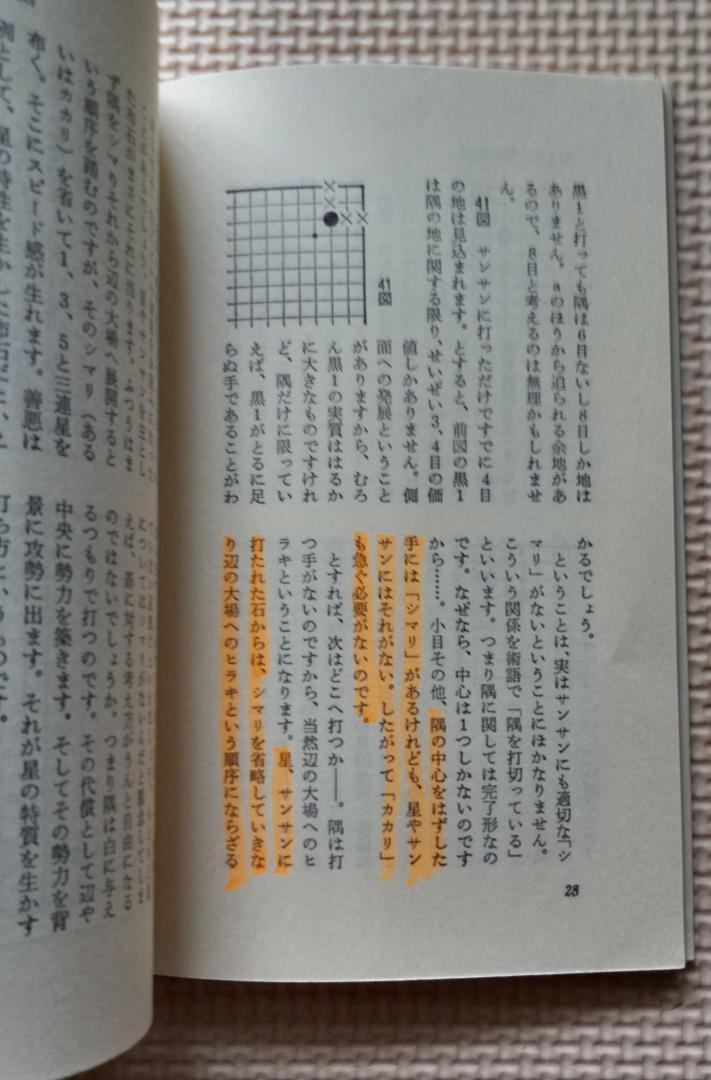 黒1と打っても隅は6目ないし8目しか地は
ありません。aのほうから迫られる余地があ
るので、8目と考えるのは無理かもしれませ
ん。
41図　サンサンに打っただけですでに4目
の地は見込まれます。とすると、前図の黒1
は隅の地に関する限り、せいぜい3、4目の価
41図
値しかありません。側
面への発展ということ
がありますから、むろ
ん黒1の実質ははるか
に大きなものですけれ
ど、隅だけに限ってい
えば、黒1がとるに足
らぬ手であることがわ
かるでしょう。
ということは、実はサンサンにも適切な「シ
マリ」がないということにほかなりません。
こういう関係を術語で「隅を打切っている」
といいます。つまり隅に関しては完了形なの
です。なぜなら、中心は1つしかないのです
から……。小目その他、隅の中心をはずした
手には「シマリ」があるけれども、星やサン
サンにはそれがない。したがって「カカリ」
も急ぐ必要がないのです。
とすれば、次はどこへ打つか――。隅は打
つ手がないのですから、当然辺の大場へのヒ
ラキということになります。星、サンサンに
打たれた石からは、シマリを省略していきな
り辺の大場へのヒラキという順序にならざる
28
ず隅をシマりそれから辺の大場へ展開すると
いう順序を踏むのですが、そのシマリ（ある
いはカカリ）を省いて1、3、5と三連星を
布く。そこにスピード感が生れます。善悪は
えば、碁に対する考え方がうんと自由になる
のではないでしょうか。つまり隅は白に与え
るつもりで打つのです。その代償として辺や
中央に勢力を築きます。そしてその勢力を背
景に攻勢に出ます。それが星の特質を生かす